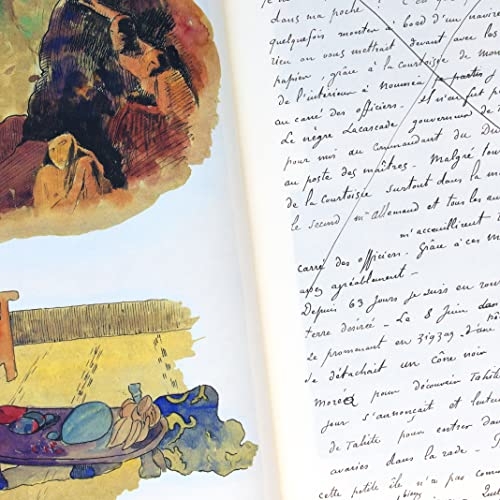 dans ma poche ! C'est que
quelquefois monter à bord d'un navire
rien on vous mettrait devant avec les
papier, grâce à la courtoisie de
de l'intérieur à Nouméa je partis
au carré des officiers. Il n'en fut p
Le nègre Lacascade gouverneur de
pour moi au commandant du
au poste des maîtres. Malgré tou
de la courtoisie surtout dans la m
le second Mr Allemand et tous les au
m'accueillirent
carré des officiers. Grâce à ces m
assez agréablement.
Depuis 63 jours je suis en rou
terre désirée. Le 8 Juin dans
Le promenant en zigzag. d'une
se détachait un cône noir
Morea pour découvrir Tahiti
jour s'annonçait et lenteur
de Tahiti pour entrer dans
avaries dans la rade. Pour
cette petite île n'a pas